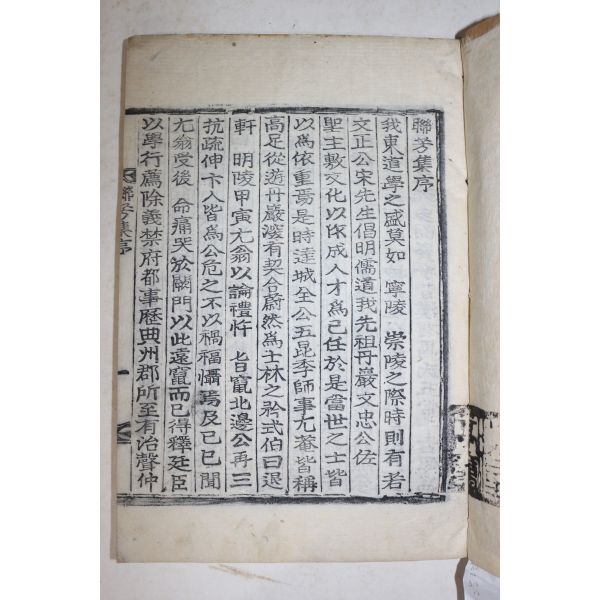 聯芳集序
我東道學之盛莫如 寧陵 崇陵之際時則有若
文正公宋先生倡明儒道我先祖丹巖文忠公佐
聖主敷文化以依成人才爲己任於是當世之士皆
以爲依重焉是時達城全公五昆季師事尤菴皆稱
高足從遊丹巖深有契合蔚然爲士林之矜式伯曰退
軒 明陵甲寅尤翁以論禮忤 旨竄北邊公再三
抗疏伸卞人皆爲公危之不以禍福懾焉及己巳聞
尤翁受後 命痛哭於闕門以此遠竄而已得釋廷臣
以學行薦除義禁府都事歷典州郡所至有治聲仲
聯芳集序
一